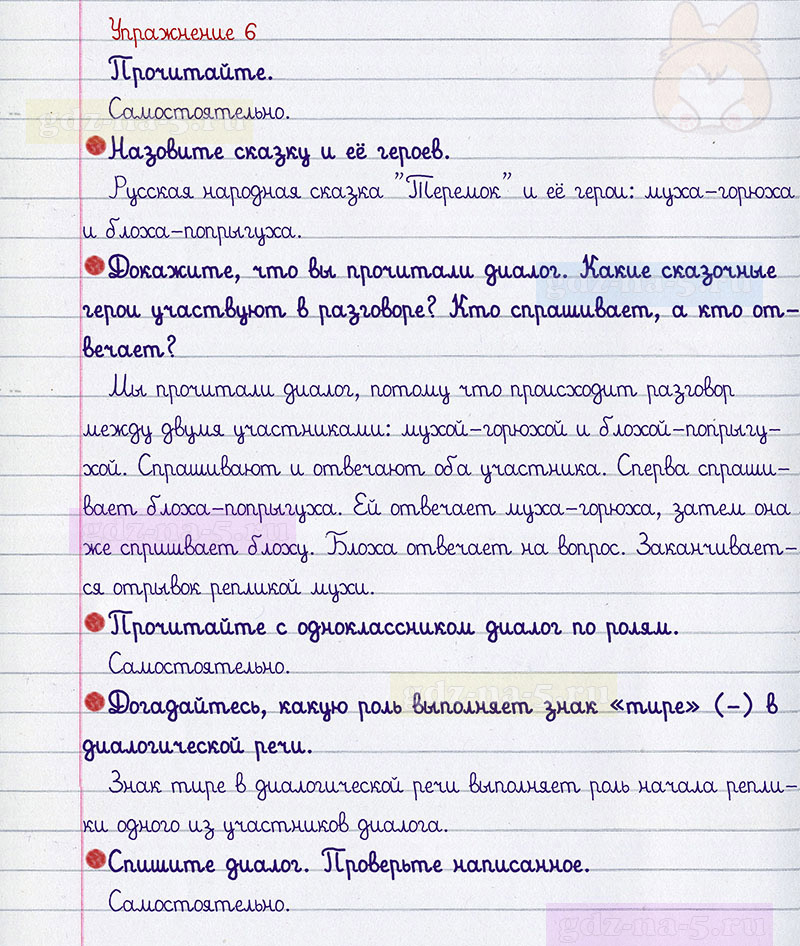 Упражнение 6
Прочитайте.
Самостоятельно.
Назовите сказку и её героев.
Русская народная сказка "Теремок" и её герои: муха-горюха
и блоха-попрыгуха.
Докажите, что вы прочитали диалог. Какие сказочные
герои участвуют в разговоре? Кто спрашивает, а кто от-
вечает?
Мы прочитали диалог, потому что происходит разговор
между двумя участниками: мухой-горюхой и блохой-попрыгу-
хой. Спрашивают и отвечают оба участника. Сперва спраши-
вает блоха-попрыгуха. Ей отвечает муха-горюха, затем она
же спришивает блоху. Блоха отвечает на вопрос. Заканчивает-
ся отрывок репликой мухи.
Прочитайте с одноклассником диалог по ролям.
Самостоятельно.
Догадайтесь, какую роль выполняет знак «тире» (-) в
диалогической речи.
Знак тире в диалогической речи выполняет роль начала репли-
ки одного из участников диалога.
Спишите диалог. Проверьте написанное.
Самостоятельно.
gdz-na-5.ru
gdz-na-5.ru
gdz-na-5.ru
gdz-na-5.ru
gdz-na-5.ru